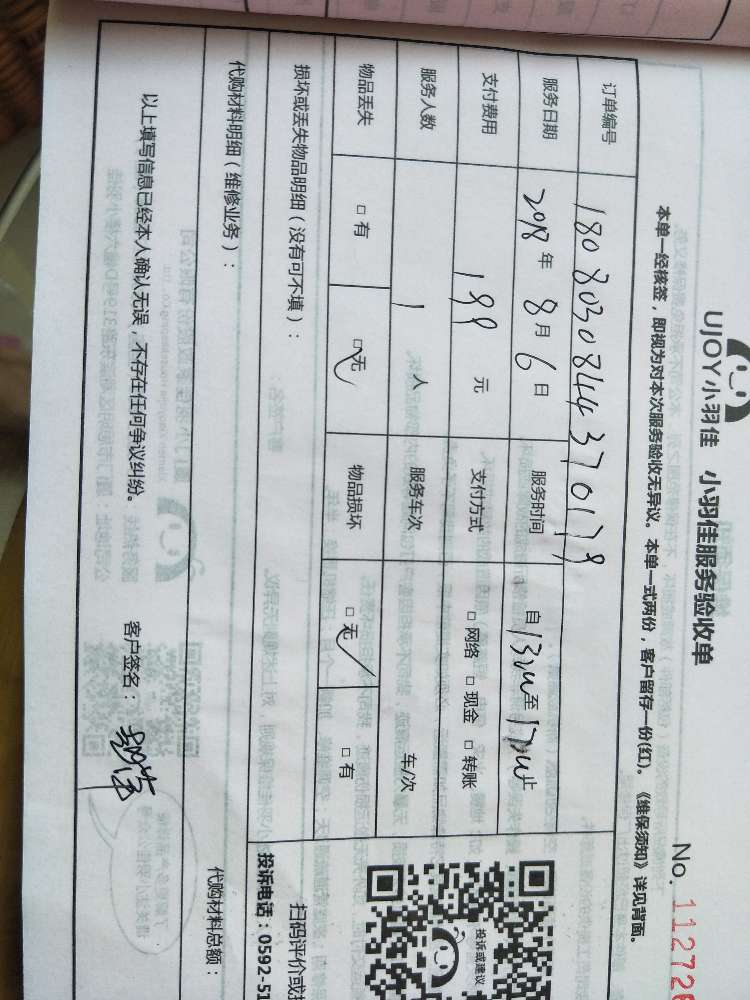 UJOY小羽佳 小羽佳服务验收单
No. 112728
本单一经核签，即视为对本次服务验收无异议。本单一式两份，客户留存一份(红)。《维保须知》详见背面。
订单编号 1808030844370179
服务日期 2018年 8月 6日 服务时间 自13:00至17:00止
支付费用 199 元 支付方式 □网络 □现金 □转账
服务人数 1 人 服务车次 车/次
物品丢失 □有 □无 物品损坏 □无 □有
损坏或丢失物品明细（没有可不填）：
代购材料明细（维修业务）： 代购材料总额：
以上填写信息已经本人确认无误，不存在任何争议纠纷。 客户签名：
投诉或建议
扫码评价或投
投诉电话：0592-51